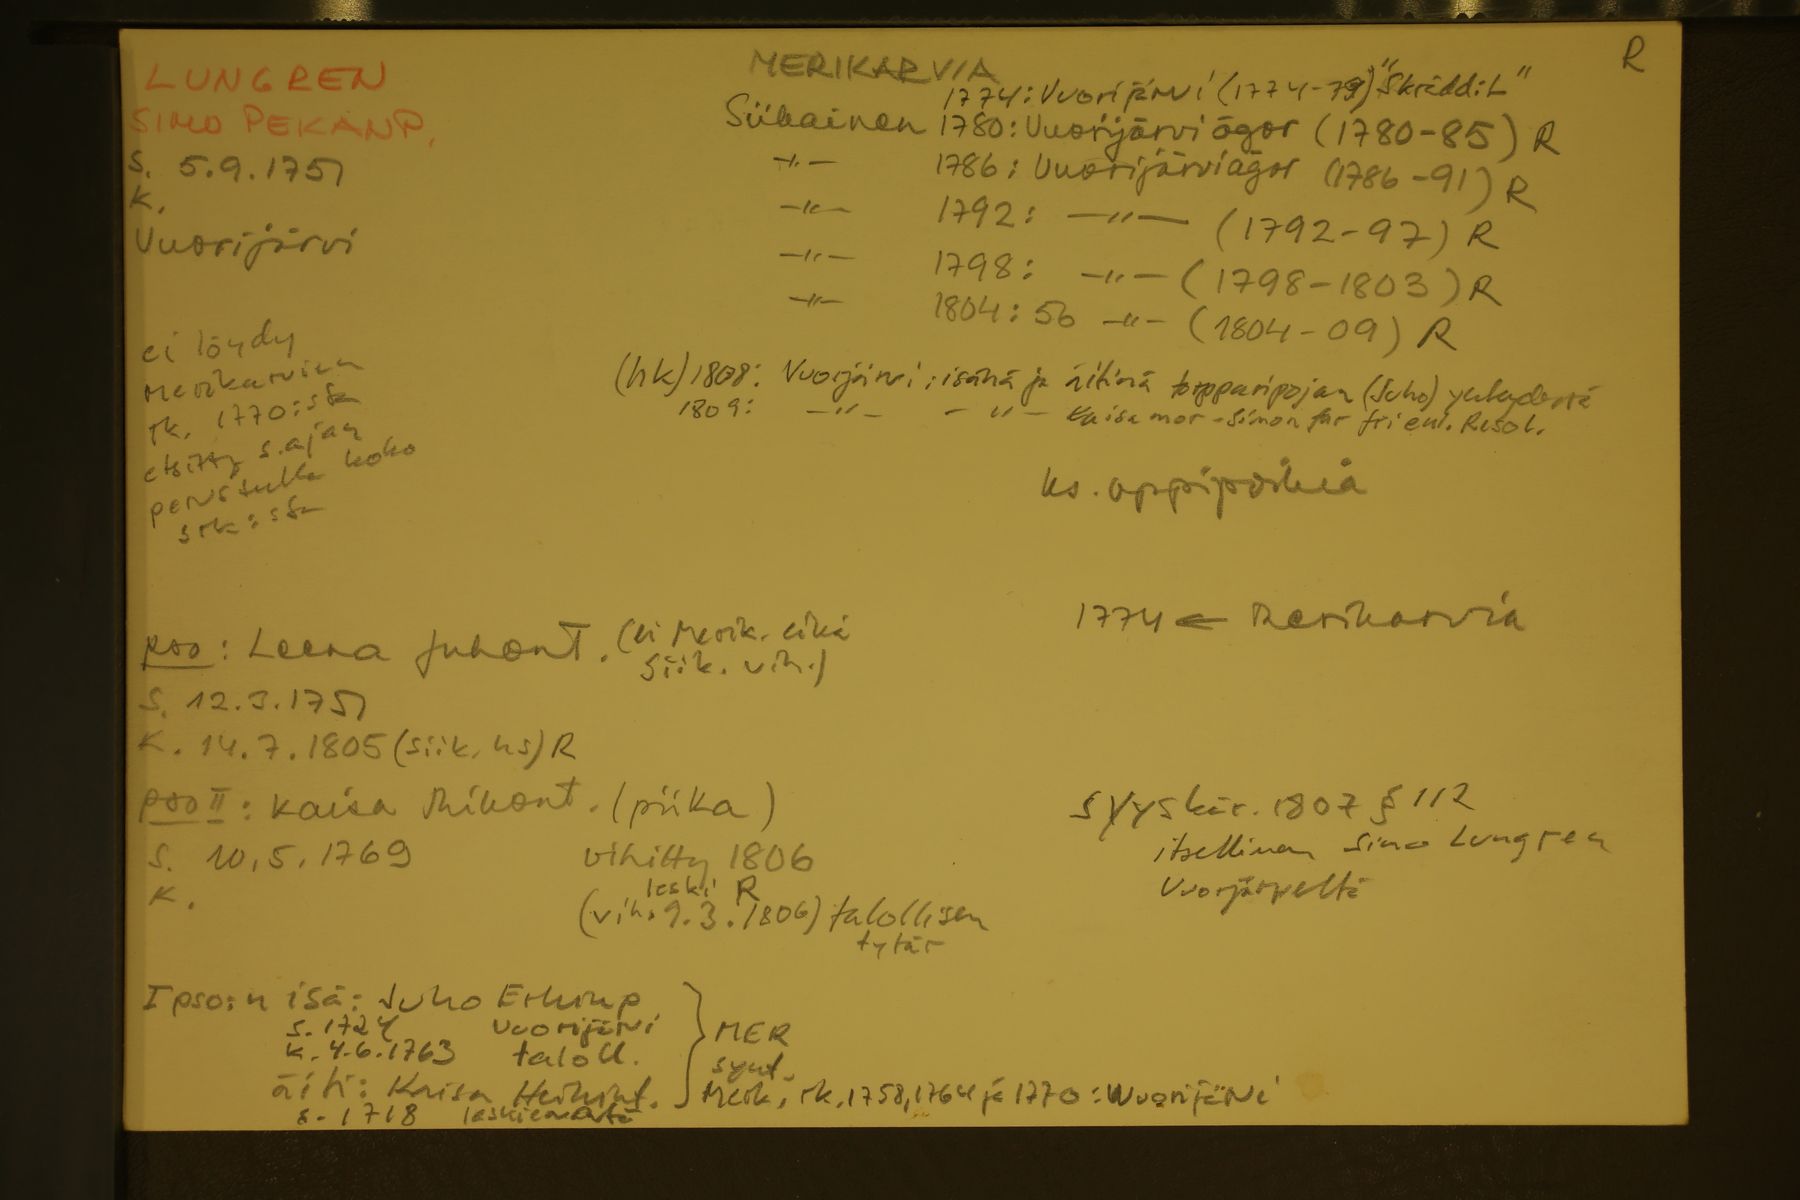 LUNGREN
SIMO PEKANP.
s. 5.9.1751
k.
Vuorijärvi
MERIKARVIA
R
1774: Vuorijärvi (1774-79) "Skrädd:L"
Siikainen 1780: Vuorijärvi ägor (1780-85) R
-"- 1786: Vuorijärvi ägor (1786-91) R
-"- 1792: -"- (1792-97) R
-"- 1798: -"- (1798-1803) R
-"- 1804: 56 -"- (1804-09) R
(hk) 1808: Vuorijärvi: isänä ja äitinä torpparipojan (Juho) yhteydessä
1809: -"- -"- Kaisa mor - Simon far fri enl. Resol.
ei löydy
Merikarvian
rk. 1770:stä
etsitty s.ajan
perusteella koko
srk:sta
ks. oppipoikia
1774 ← Merikarvia
pso: Leena Juhont. (ei Merik. eikä
Siik. vih.)
s. 12.3.1751
k. 14.7.1805 (siik. hs) R
pso II: Kaisa Mikont. (piika)
s. 10.5.1769
k.
vihitty 1806
leski R
(vih. 9.3.1806) talollisen
tytär
syyskär. 1807 § 112
itsellinen Simo Lungren
Vuorijärveltä
I pso:n isä: Juho Erkinp
s. 1724 Vuorijärvi
k. 4.6.1763 taloll.
äiti: Kaisa Heikint.
s. 1718 leskiemäntä
MER
synt.
Merik. rk. 1758, 1764 ja 1770: Wuorijärvi